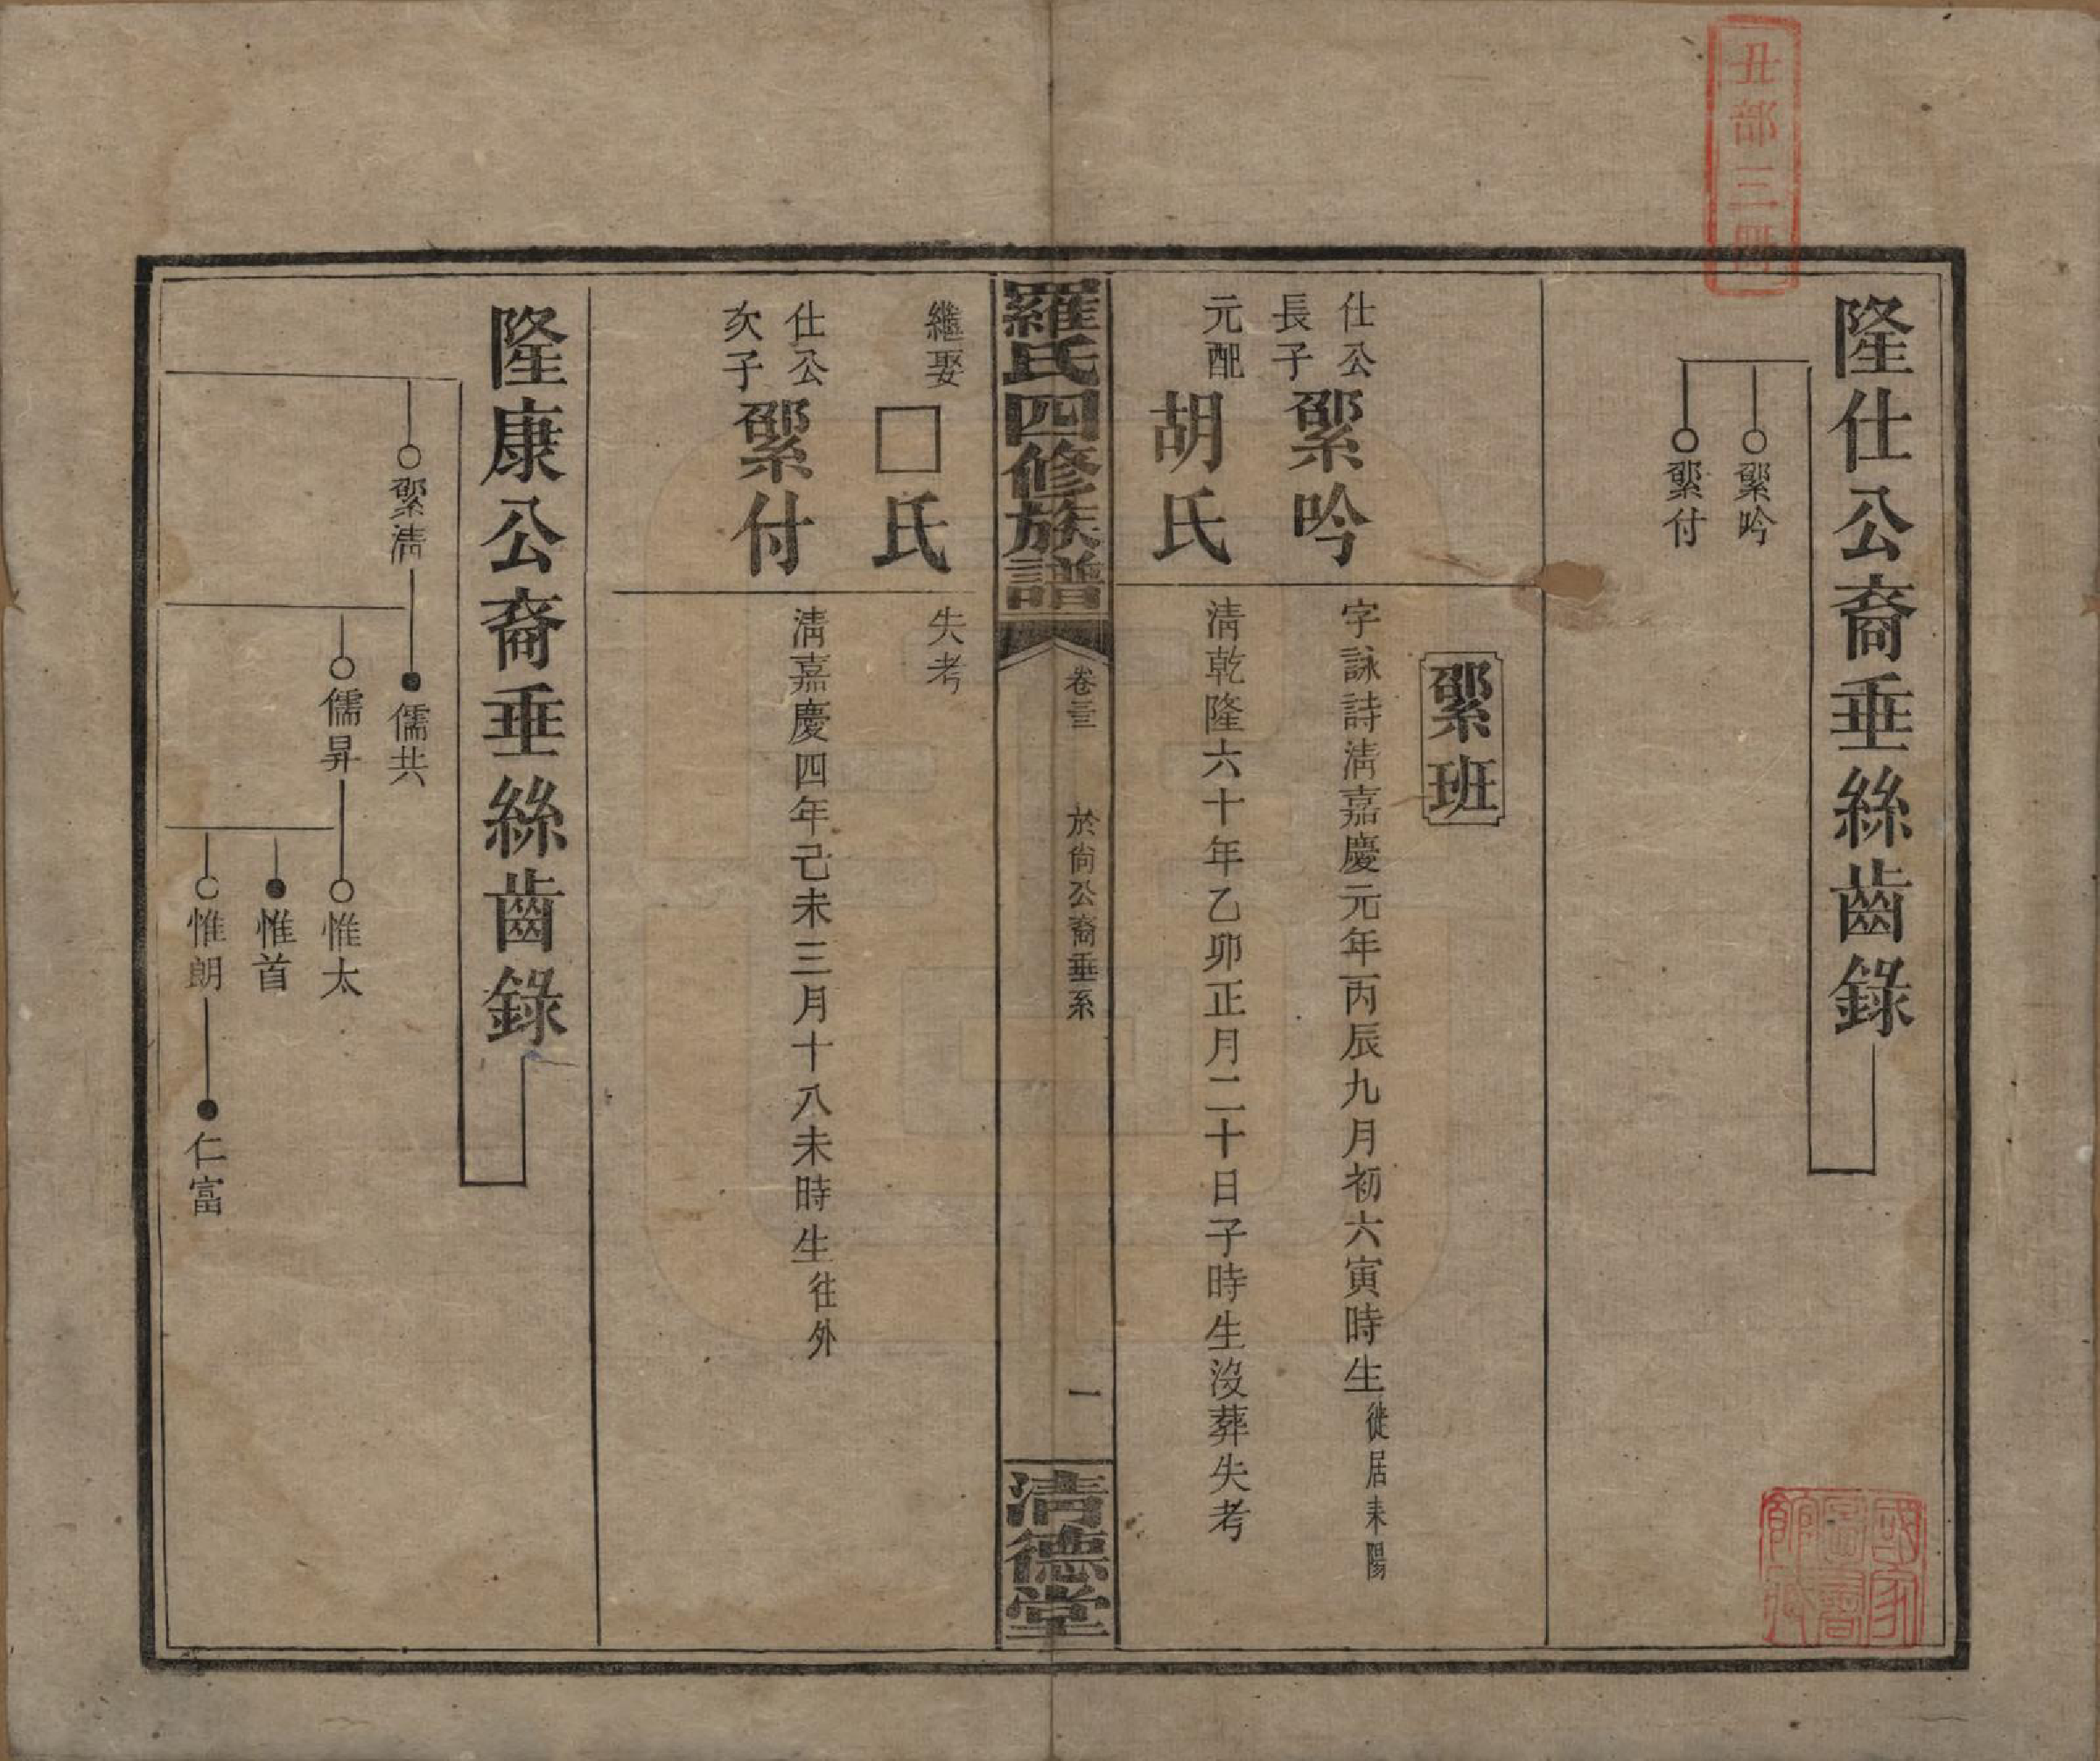 丑部三四
隆仕公裔垂絲齒錄
綤吟
綤付
綤班
仕公
長子
綤吟
字詠詩淸嘉慶元年丙辰九月初六寅時生徙居耒陽
元配
胡氏
淸乾隆六十年乙卯正月二十日子時生沒葬失考
羅氏四修族譜
卷
於尙公裔垂系
一
淸德堂
繼娶
□氏
失考
仕公
次子
綤付
淸嘉慶四年己未三月十八未時生往外
隆康公裔垂絲齒錄
綤淸
儒共
儒昇
惟太
惟首
惟朗
仁富
國家圖書館藏